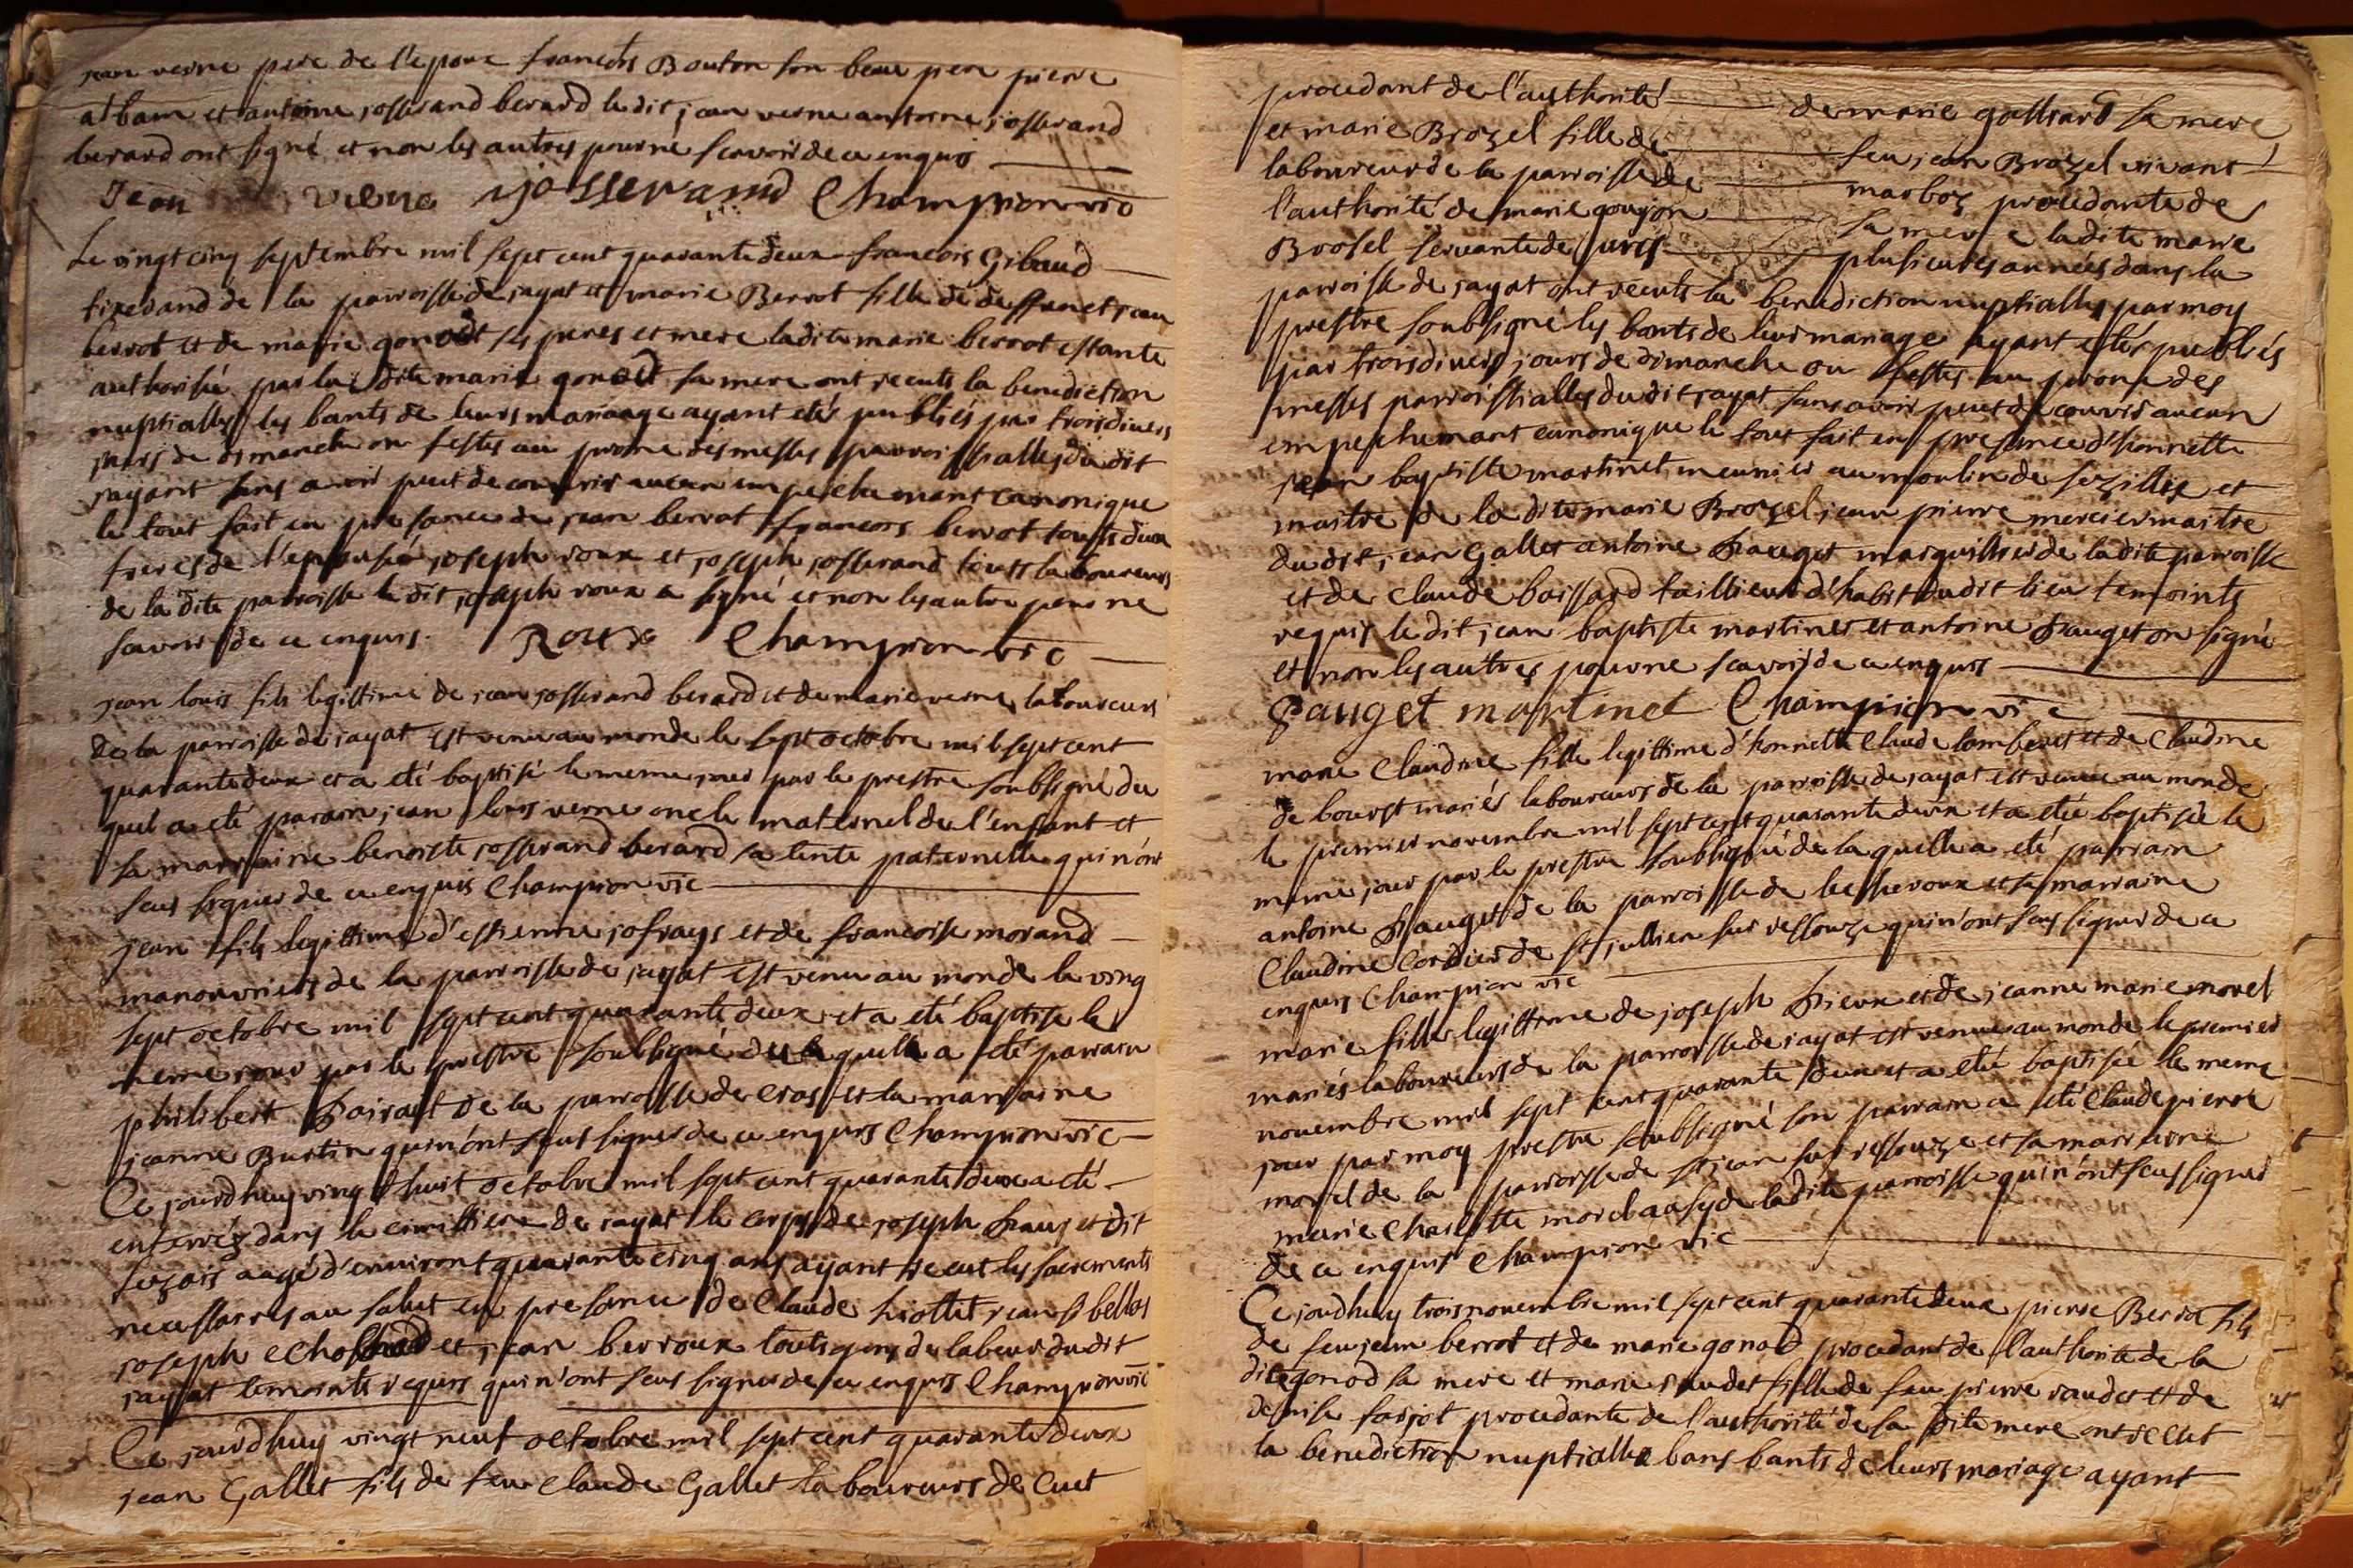 jean verne pere de l'epoux francois Bouton son beau pere pierre
alban et antoine josserand berard le dit jean verne antoine josserand
berard ont signé et non les autres pour ne scavoir de ce enquis
Jean verne josserand Champion vic
Le vingt cinq septembre mil sept cent quarante deux francois Gibaud
tixerand de la parroisse de jayat et marie Berrot fille de deffunct jean
berrot et de marie gonod ses peres et mere ladite marie berrot estante
authorisée par la dite marie gonod sa mere ont receuts la benediction
nuptialle les bants de leurs mariage ayant etés publiés par trois divers
jours de dimanche ou festes au prone des messes parroissialles du dit
jayant sans avoir peut decouvrir aucun empeschemant canonique
le tout fait en presance de jean berrot francois berrot touts deux
freres de l'epousée joseph roux et joseph josserand touts laboureurs
de la dite parroisse le dit joseph roux a signé et non les autre pour ne
scavoir de ce enquis. Roux Champion vic
jean louis fils legittime de jean josserand berard et de marie verne laboureurs
de la parroisse de jayat est venu au monde le sept octobre mil sept cent
quarante deux et a eté baptisé le meme jour par le prestre soubsigné du
quel a eté parain jean louis verne oncle maternel de l'enfant et
sa marraine benoiste josserand berard sa tente paternelle qui n'ont
seus signer de ce enquis Champion vic
jean fils legittime d'estienne jofrays et de francoise morand
manouvriers de la parroisse de jayat est venu au monde le ving
sept octobre mil sept cent quarante deux et a eté baptise le
meme jour par le prestre soubsigné de la quelle a eté parrain
philibert Pairast de la parroisse de Cras et la marraine
jeanne Burtin qui n'ont seus signer de ce enquis Champion vic
Ce jourdhuy ving t huit octobre mil sept cent quarante deux a eté
enterréz dans le cimittiere de jayat le corps de joseph Pauget dit
agé d'environt quarante cinq ans ayant receut les sacrements
necessaires au salut en presance de Claude hiottet jean
joseph et jean berroux touts gens de labeur du dit
jayat temoints requis qui n'ont seus signer de ce enquis Champion vic
Ce jourdhuy vingt neuf octobre mil sept cent quarante deux
jean Gallet fils de feu Claude Gallet laboureurs de Cuet
procedant de l'authorité de marie gallhard sa mere
et marie Brozel fille de feu jean Brozel vivant
laboureur de la parroisse de marboz procedante de
l'authorité de marie goujon sa mere ladite marie
Brosel servante de puis plusieures années dans la
parroisse de jayat ont receuts la benediction nuptialle par moy
prestre soubsigné les bants de leur mariage ayant etés publiés
par trois divers jours de dimanche ou festes au prone des
messes parroissialles du dit jayat sans avoir peut decouvrir aucun
empeschemant canonique le tout fait en presance d'honnette
jean baptiste martinet meunier au moulin de et
maitre de la dite marie Brozel jean pierre mercier maitre
du dit jean Gallet antoine Pauget marguillier de ladite parroisse
et de Claude boissard taillieur d'habit du dit lieu temoints
requis le dit jean baptiste martinet et antoine Pauget on signé
et non les autres pour ne scavoir de ce enquis
Pauget martinet Champion vic
marie Claudine fille legittime d'honnette Claude lomberet et de Claudine
de bourst mariés laboureurs de la parroisse de jayat est venue au monde
le premier novembre mil sept cent quarante deux et a etée baptisée le
meme jour par le prestre soubsigné de la quelle a eté parrain
antoine Pauget de la parroisse de lescheroux et sa marraine
Claudine Cordier de st jullien sur ressouze qui n'ont seus signer de ce
enquis Champion vic
marie fille legittime de joseph Prieux et de jeanne marie morel
mariés laboureurs de la parroisse de jayat est venue au monde le premier
novembre mil sept cent quarante deux et a etée baptisée le meme
jour par moy prestre soubsigné son parrain a eté Claude pierre
morel de la parroisse de st jean sur ressouze et sa marraine
marie Charlotte morel de ladite parroisse qui n'ont seus signer
de ce enquis Champion vic
Ce jourdhuy trois novembre mil sept cent quarante deux pierre Berrot fils
de feu jean berrot et de marie gonod procedant de l'authorité de la
dite gonod sa mere et marie raudet fille de feu pierre raudet et de
denise farjot procedante de l'authorité de sa dite mere ont receut
la benediction nuptialle bans bants de leurs mariage ayant